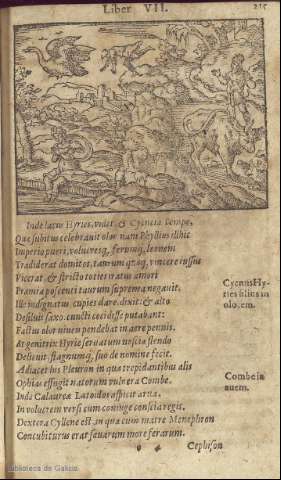 Liber VII.
215
Inde lacus Hyries videt, & Cycneia Tempe,
Quæ subitus celebrauit olor: nam Phyllius illic
Imperio pueri, volucresq; ferumq; leonem
Tradiderat domitos, taurum quoq; vincere iussus
Vicerat, & stricto toties iratus amori
Præmia poscenti taurum suprema negauit.
Ille indignatus, cupies dare: dixit: & alto
Desiluit saxo. cuncti cecidisse putabant:
Factus olor niueis pendebat in aere pennis.
At genitrix Hyrie seruatum nescia flendo
Delicuit, stagnumq; suo de nomine fecit.
Adiacet his Pleuron in qua trepidantibus alis
Ophias effugit natorum vulnera Combe.
Inde Calaureæ Latoidos aspicit arua,
In volucrem versi cum coniuge conscia regis.
Dextera Cyllene est in qua cum matre Menephron
Concubiturus erat sæuarum more ferarum.
Cephison
Cycnus Hy-
ries filius in
olorem.
Combe in
auem.
Biblioteca de Galicia